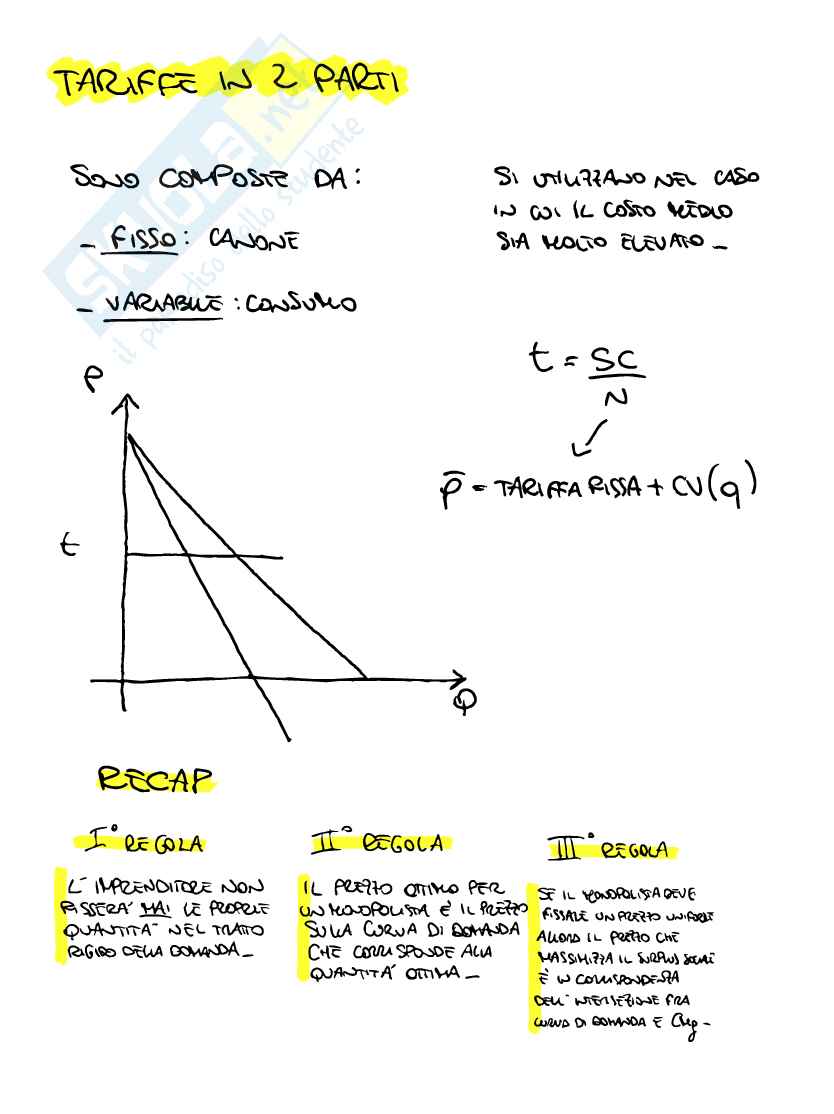 TARIFFE IN 2 PARTI
SKUOLA.net
il paradiso dello studente
SONO COMPOSTE DA:
- FISSO: CANONE
- VARIABILE: CONSUMO
SI UTILIZZANO NEL CASO
IN CUI IL COSTO MEDIO
SIA MOLTO ELEVATO -
t = SC
N
P̄ = TARIFFA FISSA + CV(q)
P
t
Q
RECAP
I° REGOLA
L'IMPRENDITORE NON
FISSERA' MAI LE PROPRIE
QUANTITA' NEL TRATTO
RIGIDO DELLA DOMANDA -
II° REGOLA
IL PREZZO OTTIMO PER
UN MONOPOLISTA È IL PREZZO
SULLA CURVA DI DOMANDA
CHE CORRISPONDE ALLA
QUANTITA' OTTIMA -
III° REGOLA
SE IL MONOPOLISTA DEVE
FISSARE UN PREZZO UNIFORME
ALLORA IL PREZZO CHE
MASSIMIZZA IL SURPLUS SOCIALE
È IN CORRISPONDENZA
DELL'INTERSEZIONE FRA
CURVA DI DOMANDA E CMg -